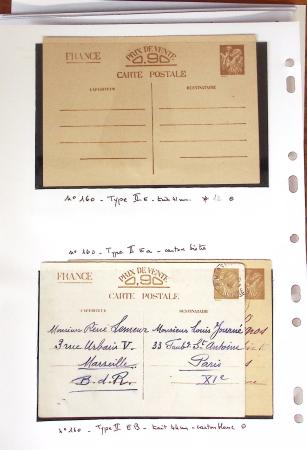 FRANCE
PRIX DE VENTE
0,90
CARTE POSTALE
EXPÉDITEUR
DESTINATAIRE
N° 160 - Type II E - trait 41 mm * 12 €
N° 160 - Type II Ea - carton bistre
FRANCE
PRIX DE VENTE
0,90
CARTE POSTALE
EXPÉDITEUR
DESTINATAIRE
Monsieur René Lemeur
Monsieur Louis Journé
3 rue Urbain V
33 Faubg St Antoine
Marseille
Paris
B.d.R.
XIe
N° 160 - Type II EB - trait 44 mm - carton blanc